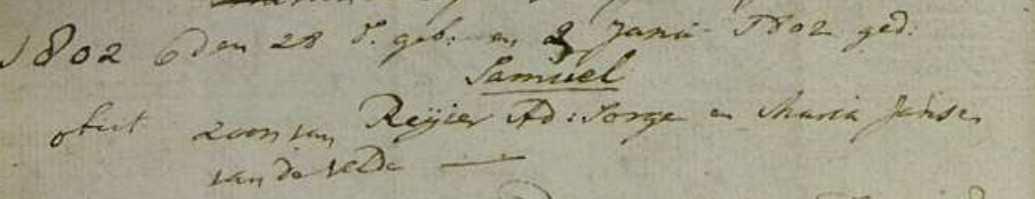 1802 6 den 28 d. geb: en 2 Janu 1802 ged:
Samuel
obiit zoon van Reijier Ad: Sorge en Maria Janse
van de Velde